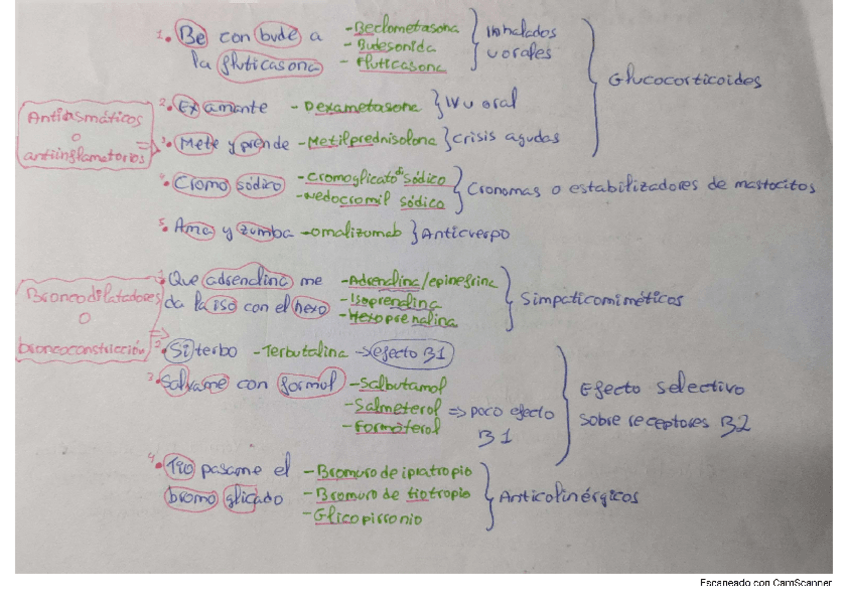 1. Be con bude a - Beclometasona
- Budesonida
la fluticasona - Fluticasona
inhalados
u orales
Glucocorticoides
Antiasmáticos
o
antiinflamatorios
2. Ex amante - Dexametasona } IV u oral
3. Mete y prende - Metilprednisolona } crisis agudas
4. Cromo sódico - Cromoglicato di sódico
- Nedocromil sódico
Cronomas o estabilizadores de mastocitos
5. Ama y zumba - omalizumab } Anticuerpo
Broncodilatadores
o
broncoconstricción
1. Que adrenalina me - Adrenalina/epinefrina
da la iso con el hexo - Isoprenalina
- Hexoprenalina
Simpaticomiméticos
2. Si terbo - Terbutalina -> efecto B1
3. Salvame con formol - Salbutamol
- Salmeterol => poco efecto
- Formoterol B1
Efecto selectivo
sobre receptores B2
4. Tio pasame el - Bromuro de ipratropio
bromo glicado - Bromuro de tiotropio
- Glicopirronio
Anticolinérgicos
Escaneado con CamScanner